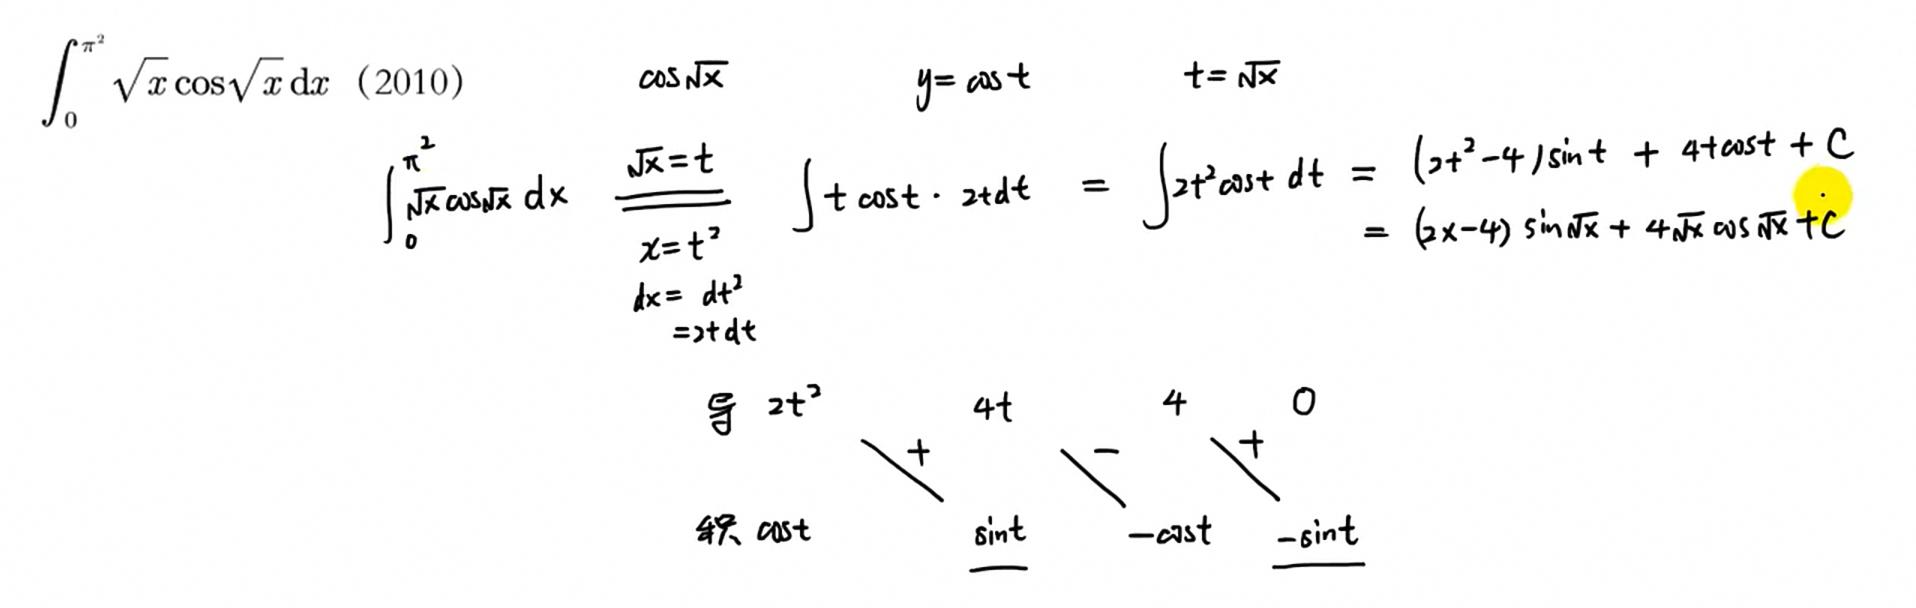 ∫₀^{π²} √x cos√x dx (2010)
cos√x y= cost t=√x
∫₀^{π²} √x cos√x dx √x=t ∫ t cost · 2tdt = ∫2t²cost dt = (2t²-4)sint + 4tcost + C
x=t² = (2x-4) sin√x + 4√x cos√x +C
dx= dt²
=2tdt
导 2t² 4t 4 0
+ - +
积 cost sint -cost -sint